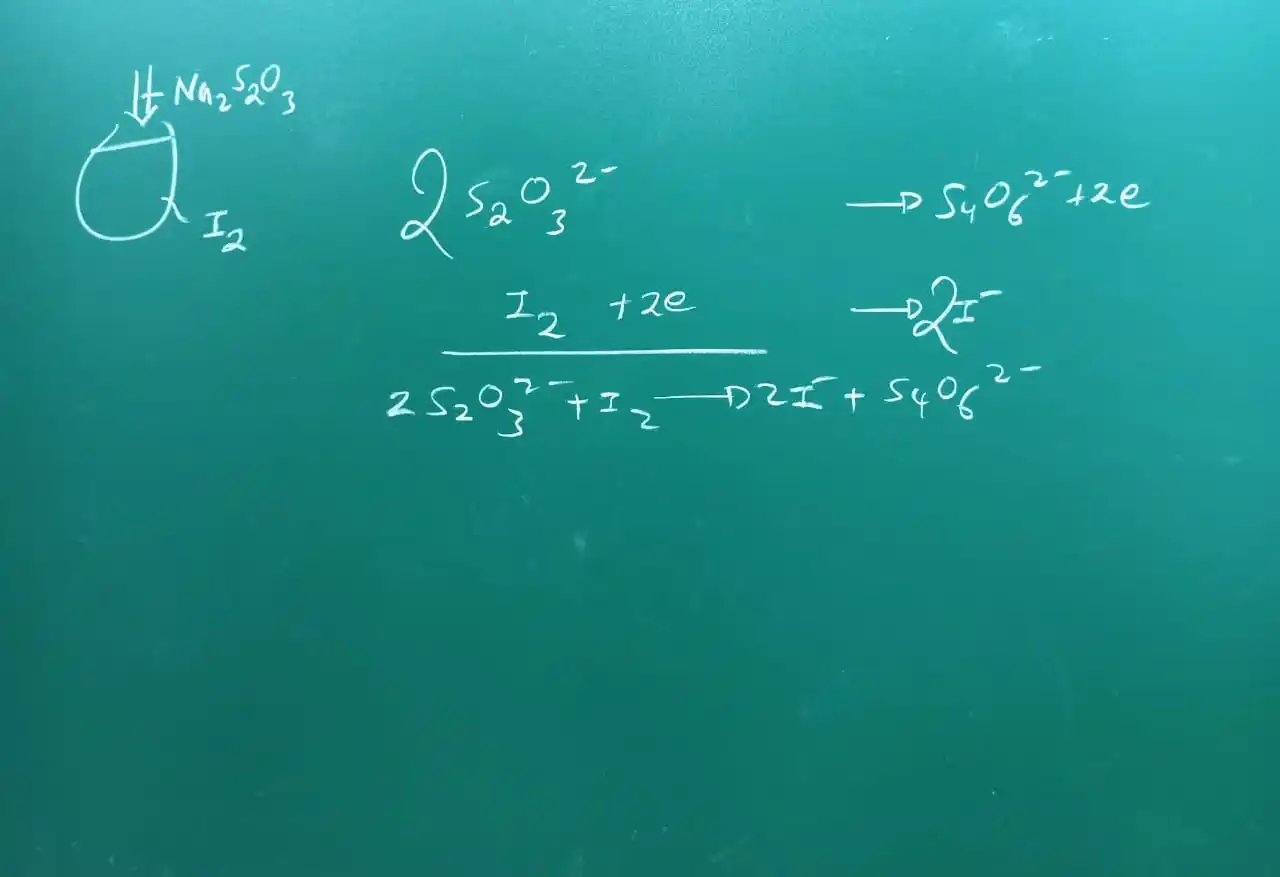 Na₂S₂O₃
I₂
2 S₂O₃²⁻ → S₄O₆²⁻ + 2e
I₂ + 2e → 2I⁻
2S₂O₃²⁻ + I₂ → 2I⁻ + S₄O₆²⁻